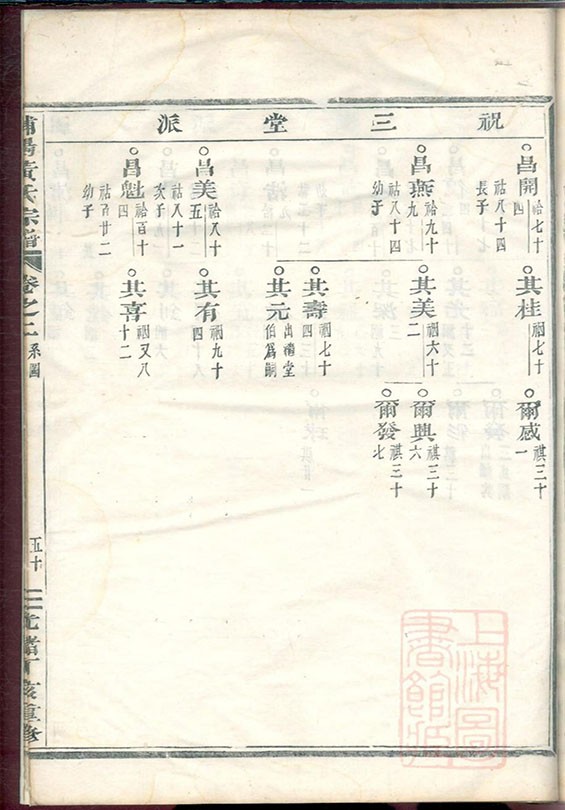 祝三堂派
昌開 祫七十四 祜八十四 長子
昌燕 祫九十九 祜八十四 幼子
昌美 祫八十五 祜八十一 次子
昌魁 祫百十四 祜百廿二 幼子
其桂 祻七十
其美 祻六十二
其壽 祻七十四
其元 出清堂伯爲嗣
其有 祻九十四
其喜 祻又八十二
爾感 祺三十一
爾興 祺三十六
爾發 祺三十七
浦陽黃氏宗譜 卷之二 系圖 五十 光緒丁亥重修
上海圖書館藏